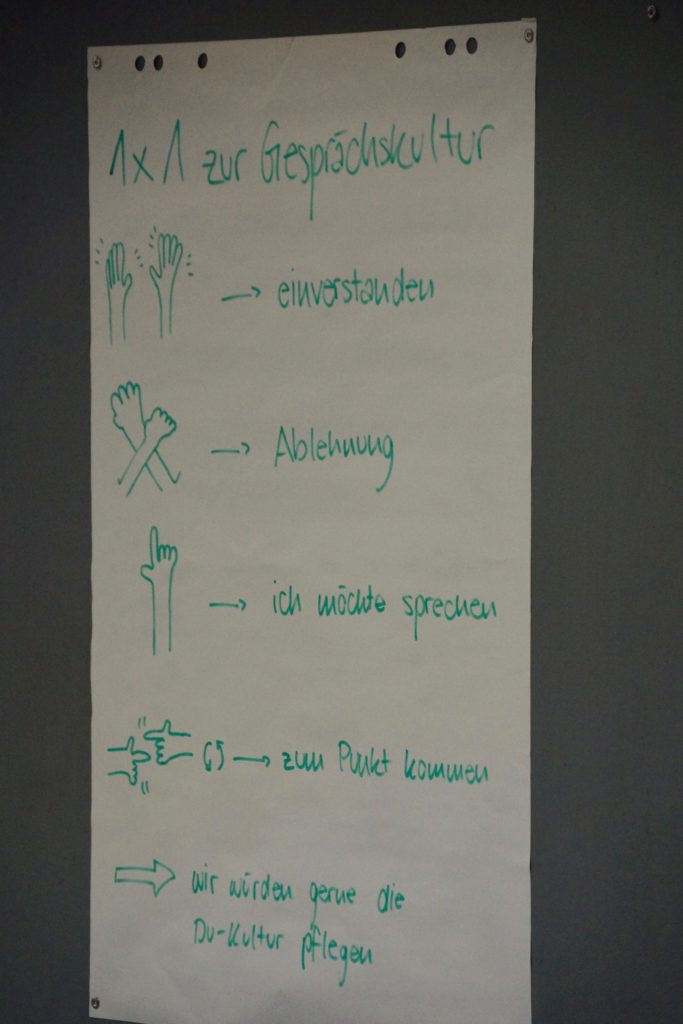 1x1 zur Gesprächskultur
→ einverstanden
→ Ablehnung
→ ich möchte sprechen
→ zum Punkt kommen
⇨ wir würden gerne die
Du-Kultur pflegen